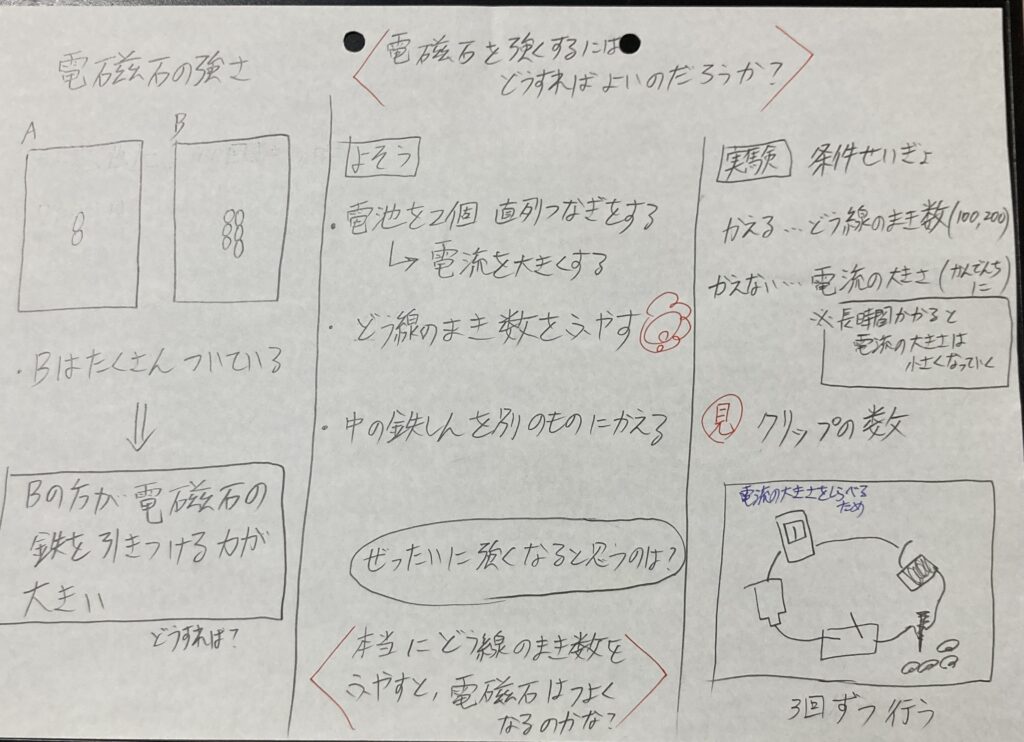 電磁石の強さ
A
B
・Bはたくさんついている
Bの方が電磁石の
鉄を引きつける力が
大きい
どうすれば?
電磁石を強くするには
どうすればよいのだろうか?
よそう
・電池を2個 直列つなぎをする
↳電流を大きくする
・どう線のまき数をふやす
・中の鉄しんを別のものにかえる
ぜったいに強くなると思うのは?
本当にどう線のまき数を
ふやすと、電磁石はつよく
なるのかな?
実験 条件せいぎょ
かえる…どう線のまき数(100,200)
かえない…電流の大きさ(かんでんち
に)
※長時間かかると
電流の大きさは
小さくなっていく
見 クリップの数
電流の大きさをしらべる
ため
3回ずつ行う